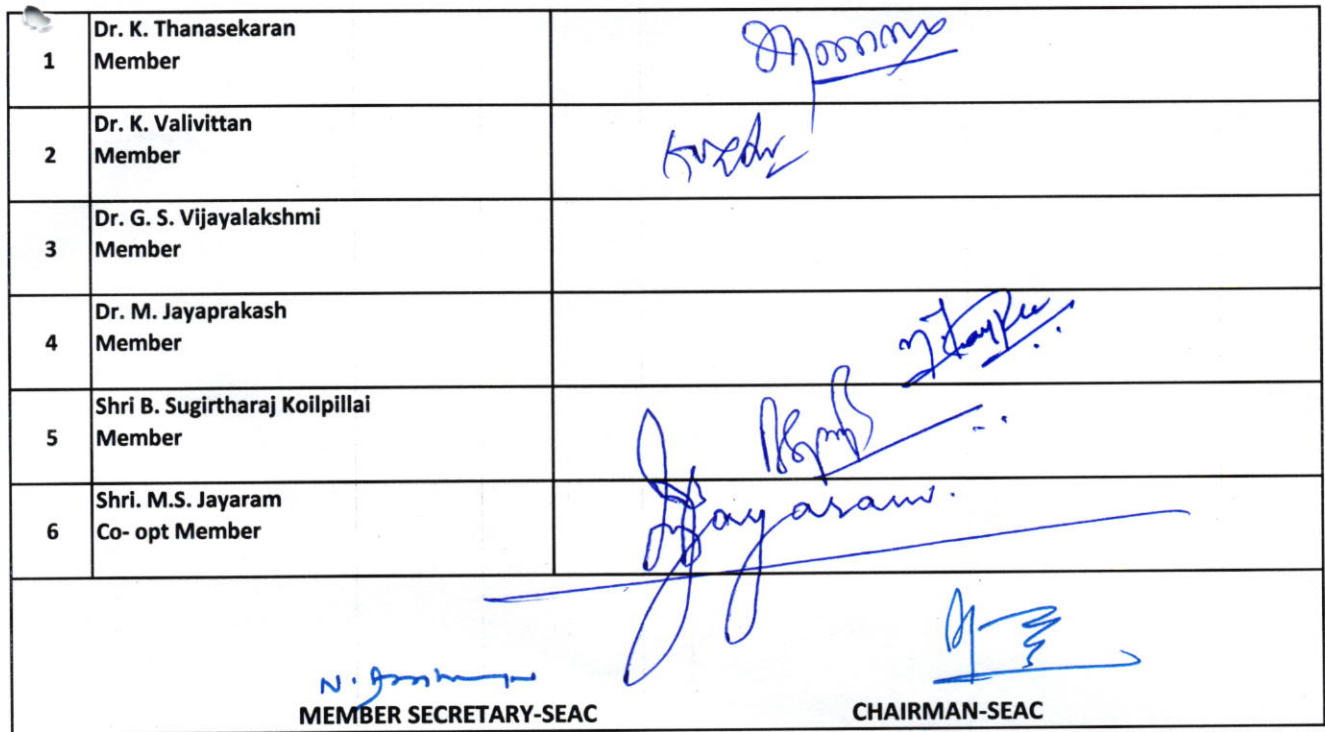 1
Dr. K. Thanasekaran
Member
2
Dr. K. Valivittan
Member
3
Dr. G. S. Vijayalakshmi
Member
4
Dr. M. Jayaprakash
Member
5
Shri B. Sugirtharaj Koilpillai
Member
6
Shri. M.S. Jayaram
Co- opt Member
Jayaram.
MEMBER SECRETARY-SEAC
CHAIRMAN-SEAC